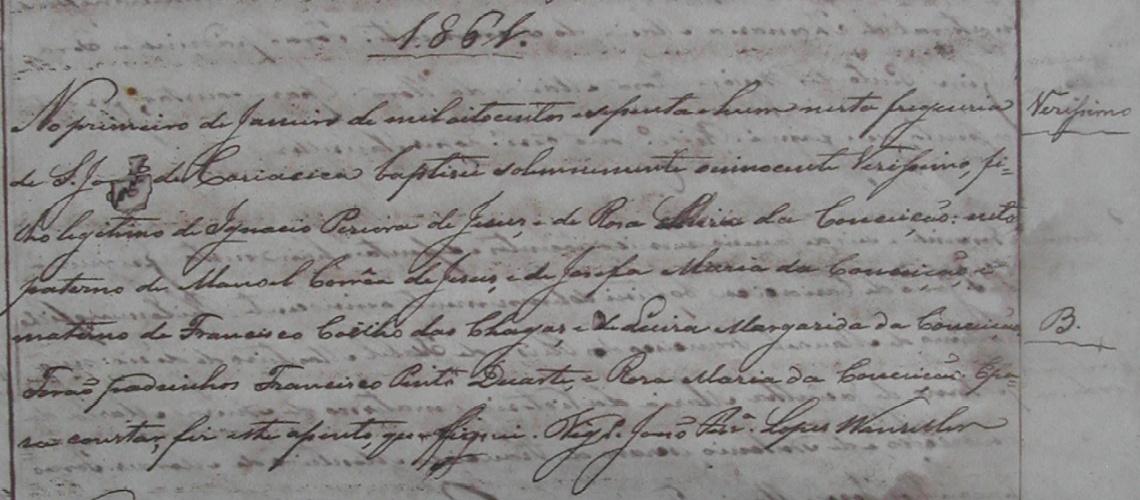 1861.
No primeiro de Janeiro de mil oitocentos esessenta ehum nesta freguezia
Verissimo
de S. João de Cariacica baptisei solemnemente oinnocente Verissimo, fi-
lho legitimo de Ignacio Pereira de Jesus, e de Rosa Maria da Conceição: neto
paterno de Manoel Corrêa de Jesus, e de Josefa Maria da Conceição, e
materno de Francisco Coêlho das Chagas, e de Luiza Margarida da Conceição
B.
Forão padrinhos Francisco Pinto Duarte, e Rosa Maria da Conceição. Epa-
ra constar, fiz este assento, que assignei. Vigr.º João Per.ª Lopes